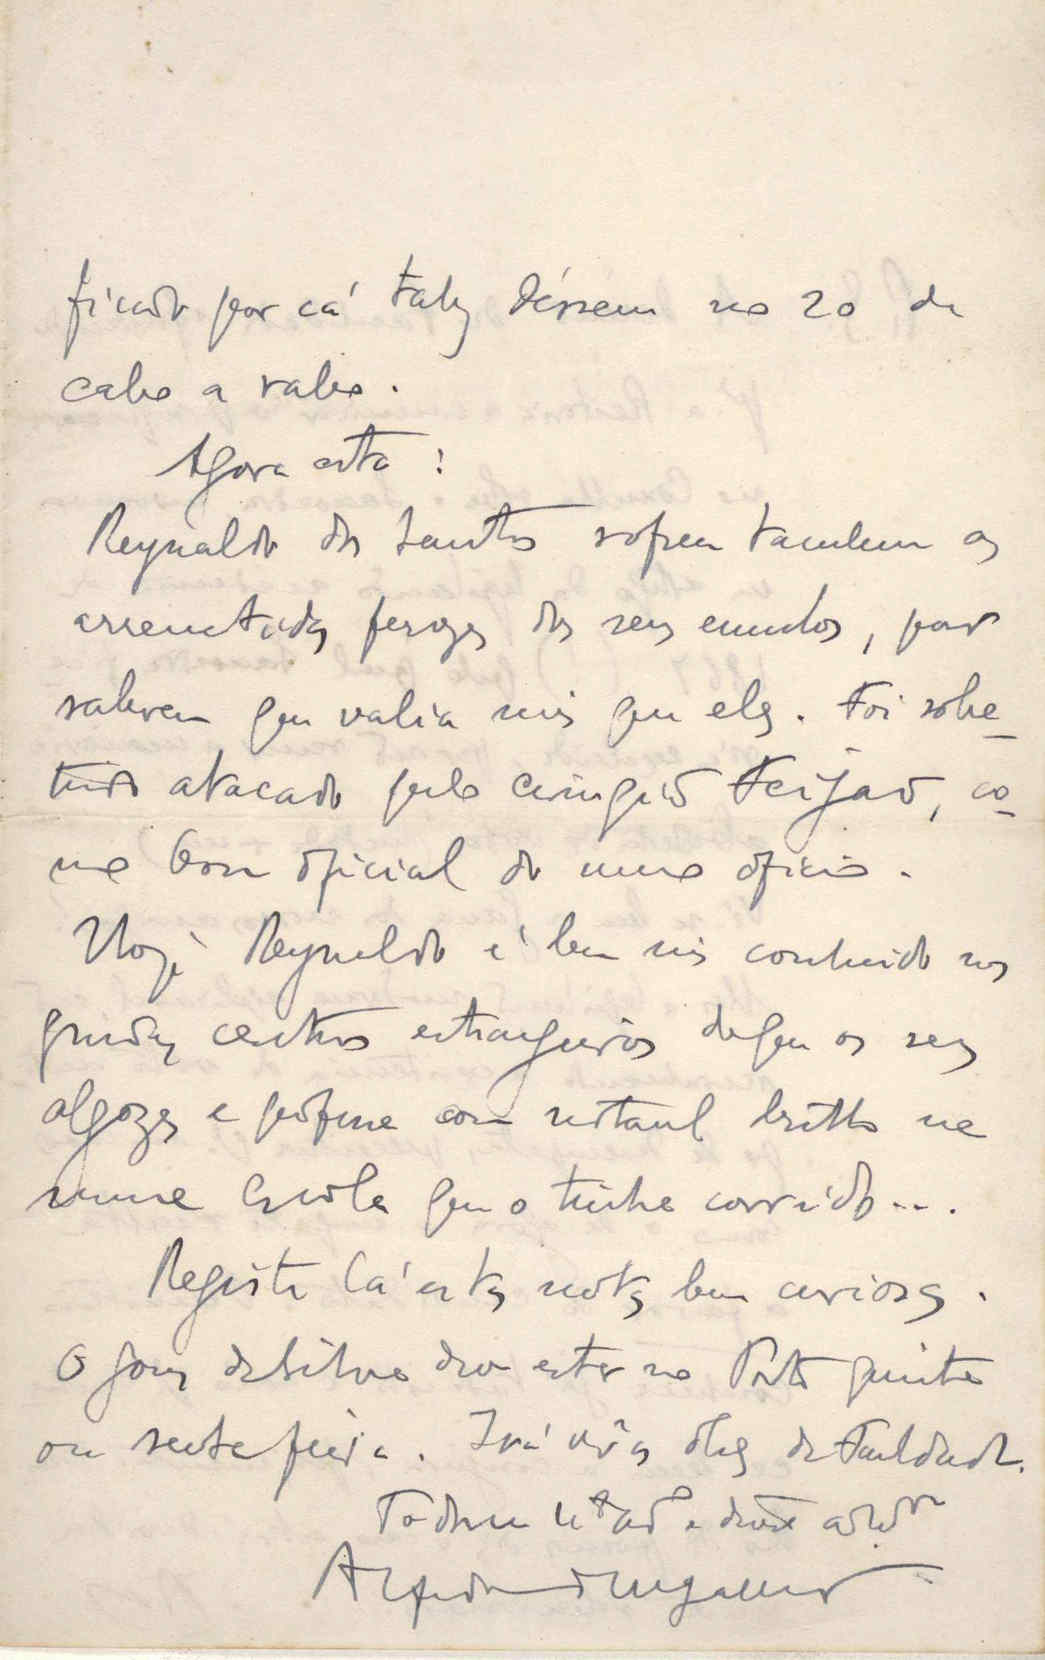 ficado por cá talvez déssem no 20 de
cabo a rabo.
Agora esta:
Reynaldo dos Santos sofreu tambem as
arremetidas ferozes dos seus emulos, por
saberem que valia mais que eles. Foi sobre-
tudo atacado pelo cirurgião Feijão, co-
mo bom oficial do mesmo oficio.
Hoje Reynaldo é bem mais conhecido nos
grandes centros estrangeiros do que os seus
algozes e professa com notavel brilho na
mesma Escola que o tinha corrido...
Registe lá estas notas bem curiosas.
O Gomes da Silva deve estar no Porto quinta
ou sexta feira. Irá á Faculdade.
Todo seu
Alfredo de Magalhães